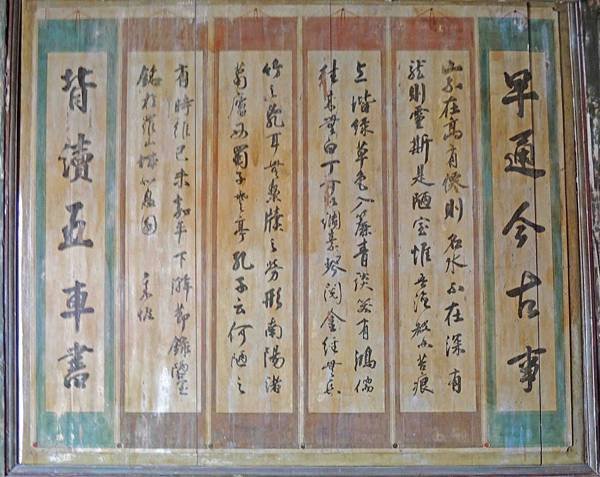 早通今古事
山不在高有僊則名水不在深有
龍則靈斯是陋室惟吾德馨苔痕
上階綠草色入簾青談笑有鴻儒
往來無白丁可以調素琴閱金經無絲
竹之亂耳無案牘之勞形南陽諸
葛廬西蜀子雲亭孔子云何陋之
有時維己未嘉平下澣節錄陋室
銘於羅山
背讀五車書